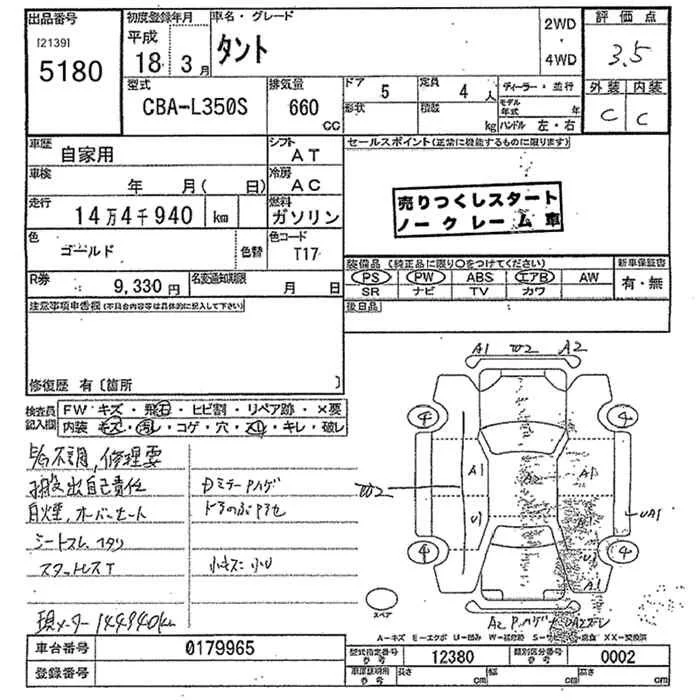 出品番号
[2139]
5180
初度登録年月
平成
18年 3月
車名・グレード
タント
2WD
・
4WD
評価点
3.5
外装 内装
C C
型式
CBA-L350S
排気量
660
CC
ドア 5
形状
定員 4人
積載 kg
ディーラー・並行
モデル年式 年
ハンドル 左・右
車歴
自家用
シフト
AT
車検
年 月( 日)
冷房
AC
走行
14万4千940 km
燃料
ガソリン
色
ゴールド
色替
色コード
T17
R券
9,330円
名変通知期限
月 日
セールスポイント(正常に機能するものに限ります)
売りつくしスタート
ノークレーム車
装備品(純正品に限り○をつけてください)
PS PW ABS エアB AW
SR ナビ TV カワ
新車保証書
有・無
後日品
注意事項申告欄(不具合内容等は具体的に記入して下さい)
修復歴 有〔箇所 〕
検査員
記入欄
FW キズ・飛石・ヒビ割・リペア跡・×要
内装 キズ・汚れ・コゲ・穴・スレ・キレ・破レ
不調,修理要
搬出自己責任
白煙,オーバーヒート
シートスレ,ヘタリ
スタットレスT
現メーター144940km
Dミラー Pハゲ
小キズ 小U
A1 W2 A2
4 4
A1 A1
W2
U1 UA1
4 4
A1
スペア
A2 Pハゲ
A-キズ E-エクボ U-凹み W-補修跡 S-サビ XX-交換済
車台番号
0179965
登録番号
型式指定番号
参考
12380
類別区分番号
参考
0002
車庫証明用
参考
長さ cm
幅 cm
高さ cm